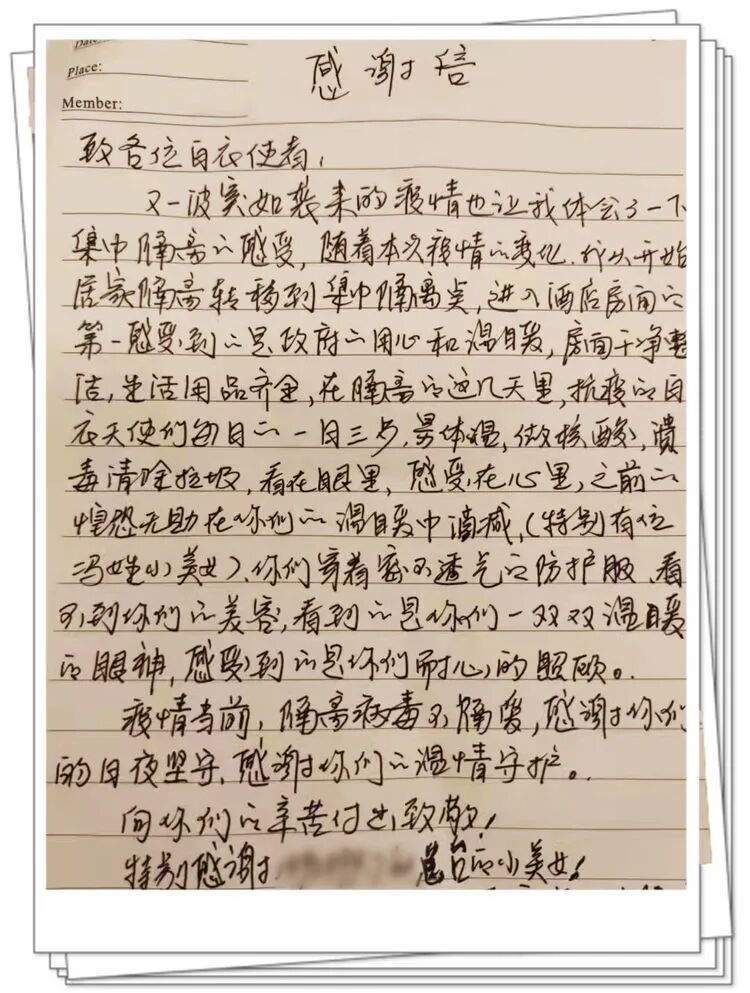 Place:
Member:
感谢信
致各位白衣使者,
又一波突如袭来的疫情也让我体会了一下
集中隔离的感受,随着本次疫情的变化.我从开始
居家隔离转移到集中隔离点,进入酒店房间的
第一感受到的是政府的用心和温暖,房间干净整
洁,生活用品齐全,在隔离的这几天里,抗疫的白
衣天使们每日的一日三步,量体温,做核酸,消
毒清除垃圾,看在眼里,感受在心里,之前的
惶恐无助在你们的温暖中消减,(特别有位
冯姓小美女).你们穿着密不透气的防护服.看
不到你们的美容,看到的是你们一双双温暖
的眼神,感受到的是你们耐心的照顾。
疫情当前,隔离病毒不隔爱,感谢你们
的日夜坚守.感谢你们的温情守护。
向你们的辛苦付出致敬!
特别感谢 总台的小美女!